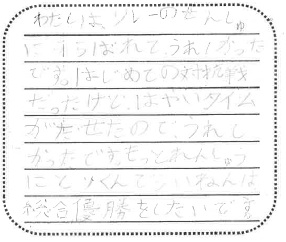 わたしは、リレーのせんしゅ
にえらばれて、うれしかった
です。はじめての対抗戦
だったけど、はやいタイム
がだせたので、うれし
かったです。もっとれんしゅう
にとりくんでらいねんは
総合優勝をしたいです。